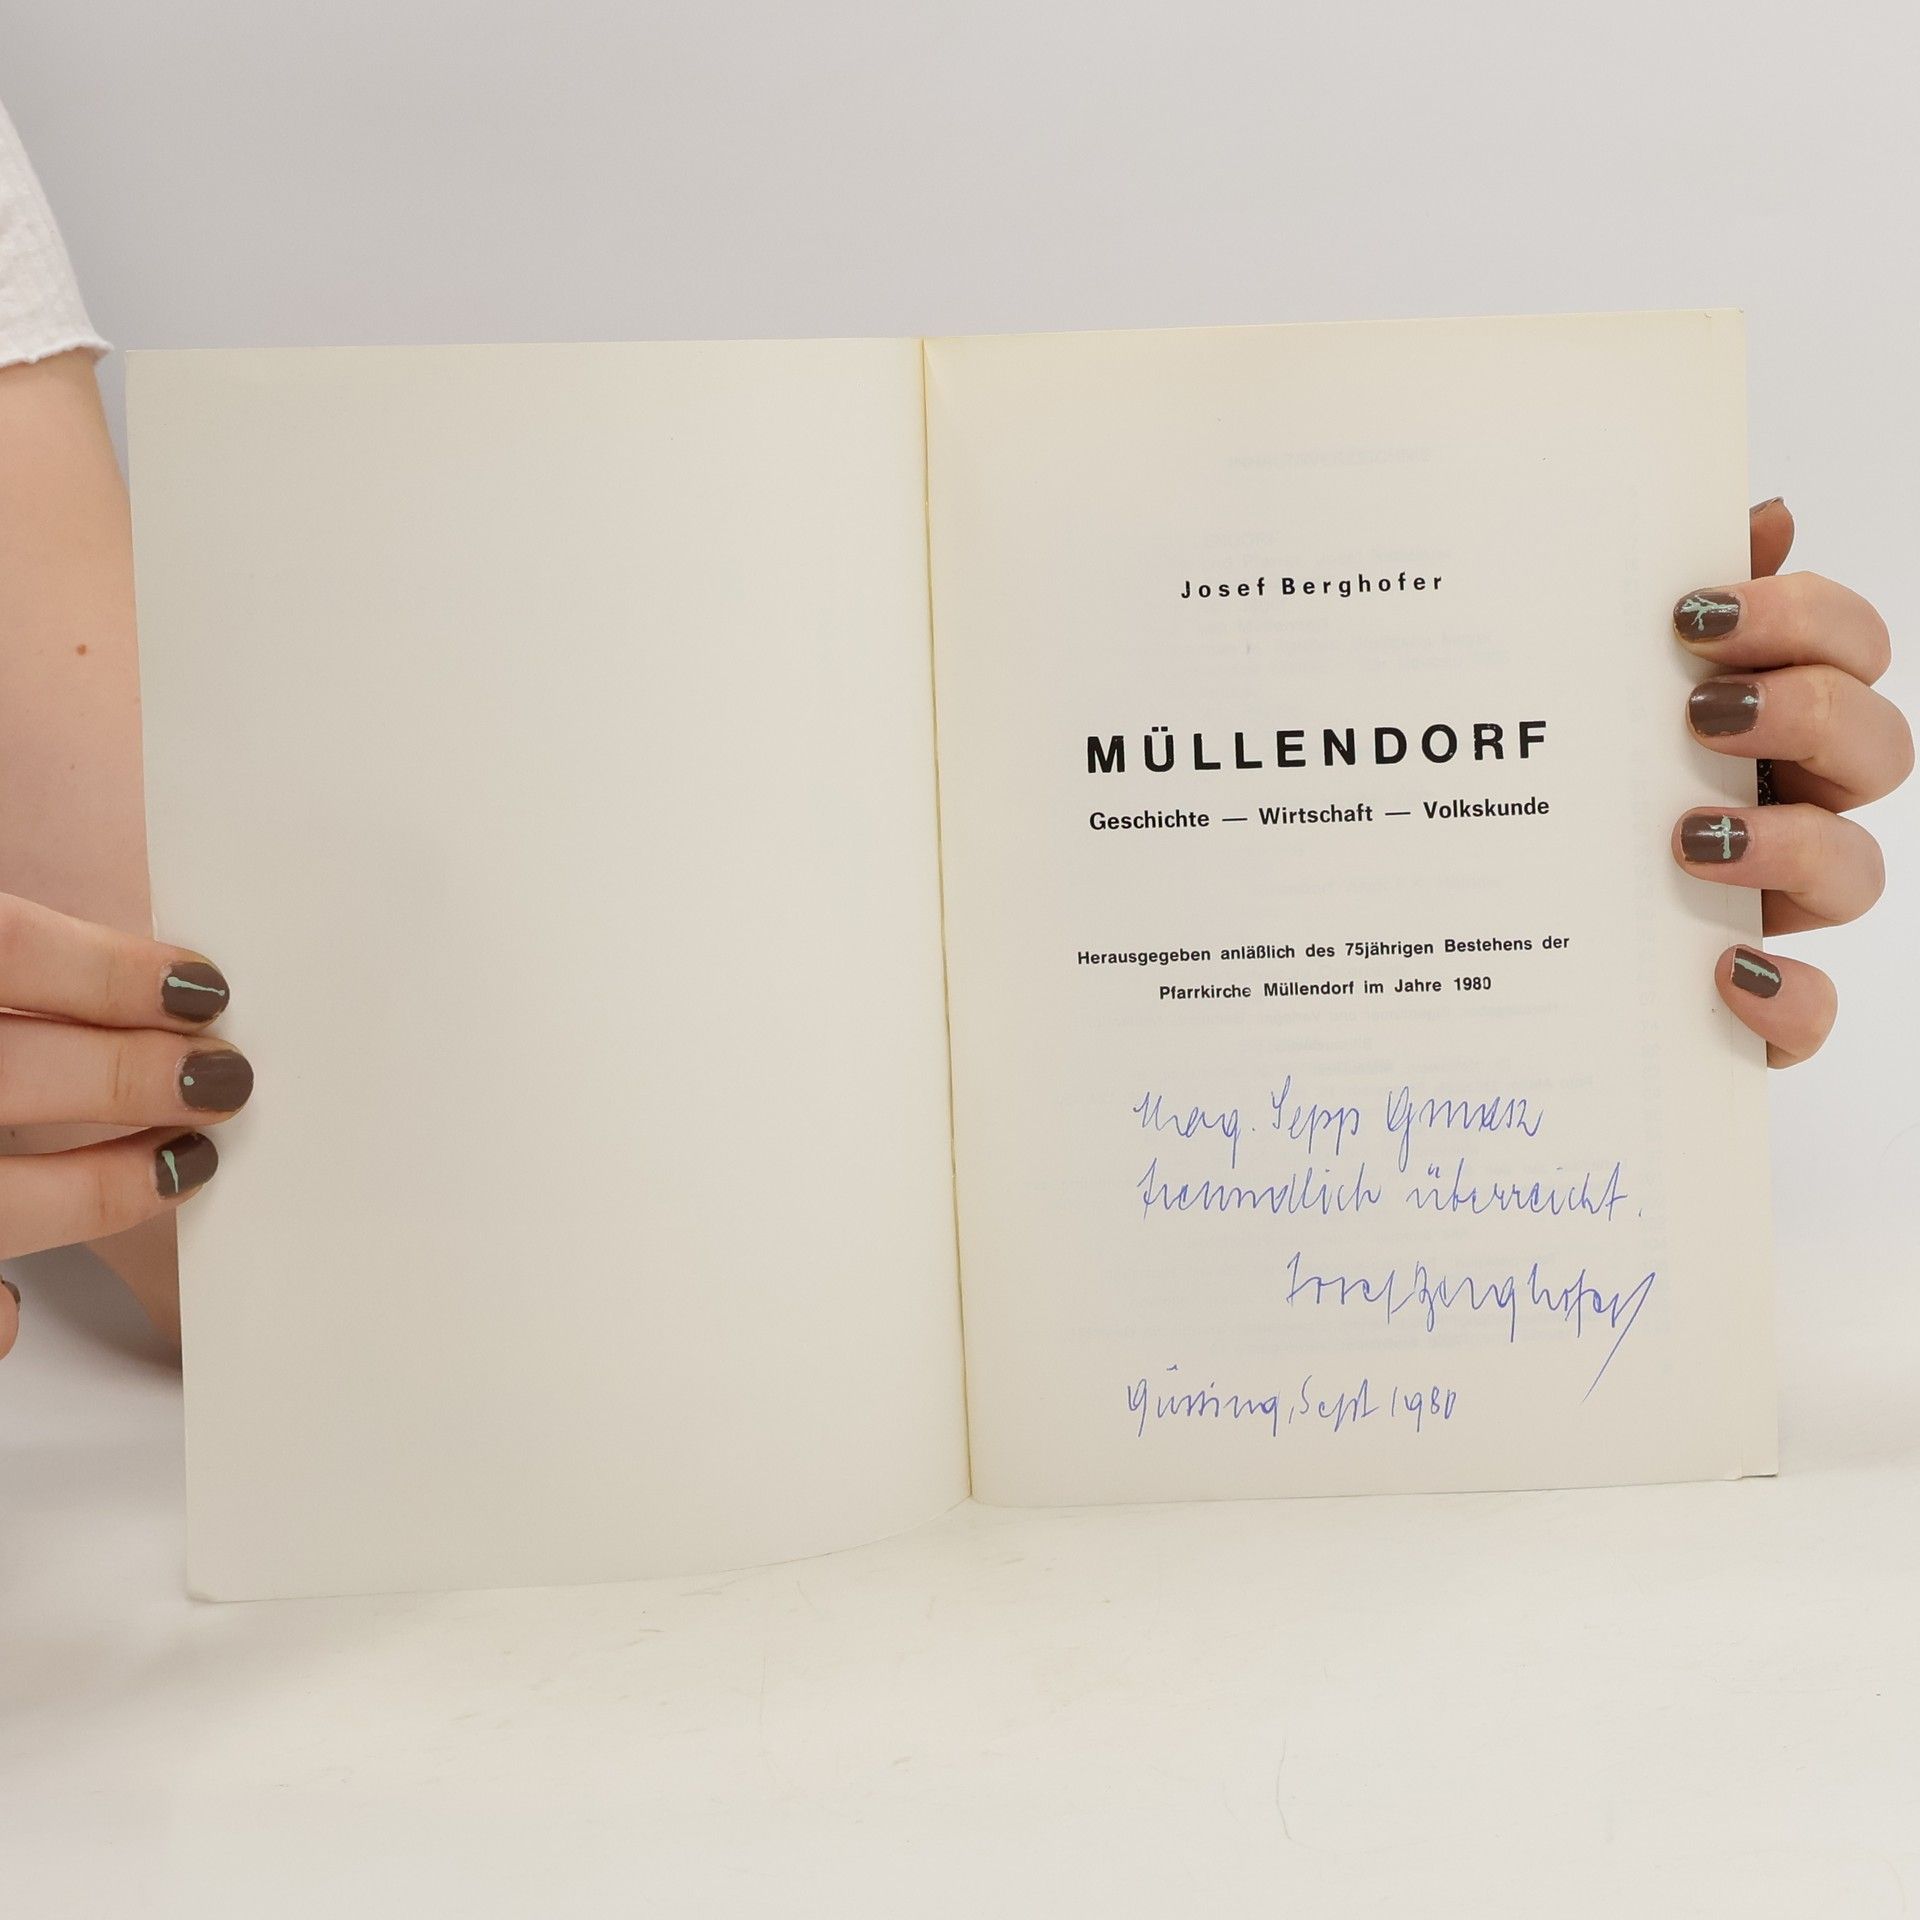 Josef Berghofer
MÜLLENDORF
Geschichte — Wirtschaft — Volkskunde
Herausgegeben anläßlich des 75jährigen Bestehens der
Pfarrkirche Müllendorf im Jahre 1980
Mag. Sepp Gmasz
freundlich überreicht.
Josef Berghofer
Güssing, Sept 1980